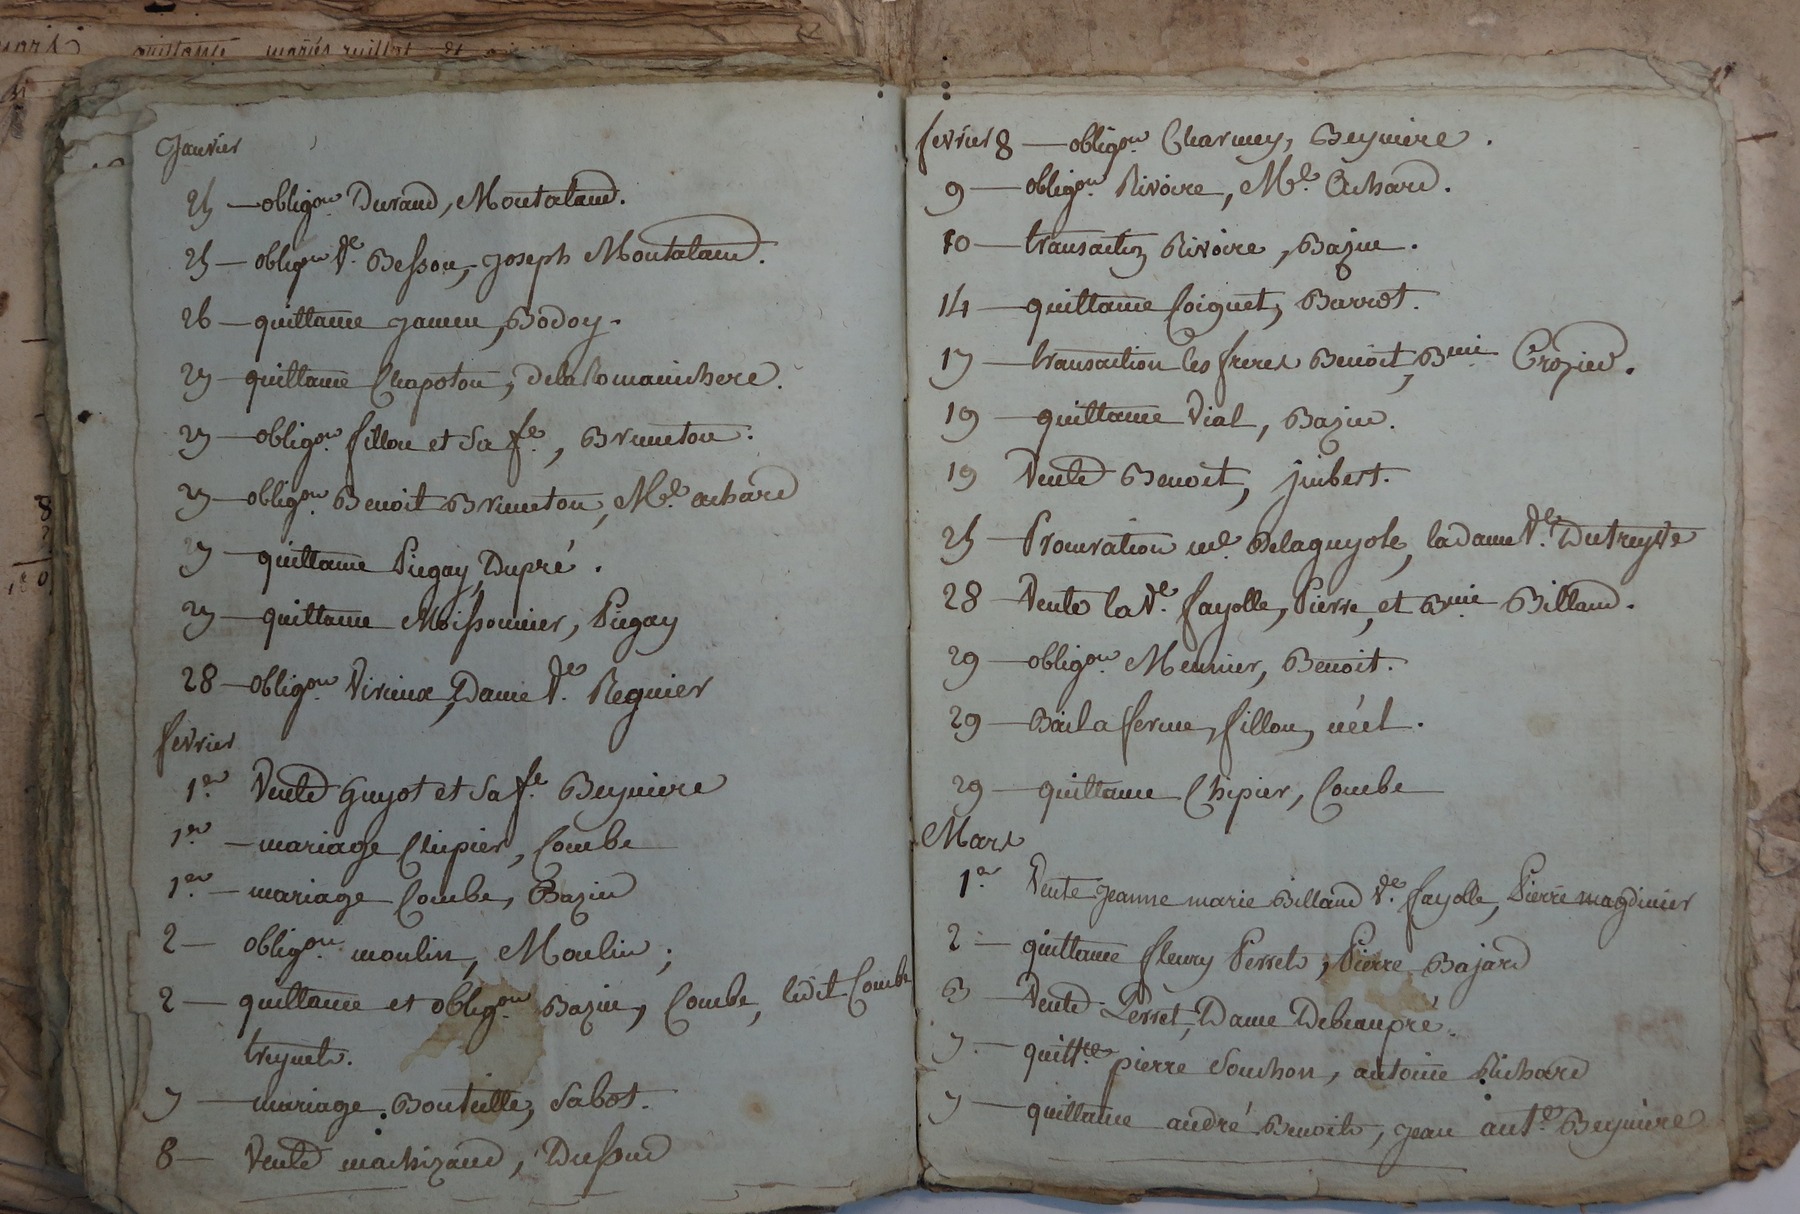 mars quittance mariés ruillat et
Janvier
25 — obligon. Durand, Montaland.
25 — obligon Ve. Besson, Joseph Montaland.
26 — quittance Jamen, Bodoy.
27 — quittance Chapoton, delaRomanchere.
27 — obligon. fillon et Sa fe., Bruneton.
27 — obligon. Benoit Bruneton, Mde. achard
27 — quittance Piegay, Dupré.
27 — quittance Moissonnier, Piegay
28 — obligon. Virieux, Dame Ve. Regnier
fevrier
1er. Vente Guyot et Sa fe. Beyniere
1er. — mariage Chipier, Combe
1er. — mariage Combe, Bazin
2 — obligon. moulin, Moulin;
2 — quittance et obligon. Bazin, Combe, ledit Combe
treynet.
7 — mariage Bouteille, Sabot.
8 — Vente machizaud, Dussud
fevrier 8 — obligon. Charmey, Beyniere.
9 — obligon. Rivoire, Mde. Achard.
10 — transaction Rivoire, Bazin.
14 — quittance Coignet, Barrot.
17 — transaction les freres Benoit, Bmi Crozier.
19 — quittance Vial, Bazin.
19 Vente Benoit, jinbert.
25 — Procuration me. Delaguyole, la dame Ve. Dutreyve
28 — Vente la Ve. fayolle, Pierre, et Bmi Billand.
29 — obligon. Meunier, Benoit.
29 — Bail a ferme, fillon, néel.
29 — quittance Chipier, Combe
Mars
1er. Vente Jeanne marie Billand Ve. fayolle, Pierre magdinier
2 — quittance fleury Perret, Pierre Bajard
3 — Vente Perret, Dame Debeaupré.
7 — quittce pierre Souchon, antoine Richard
7 — quittance andré Benoit, Jean ante. Beyniere